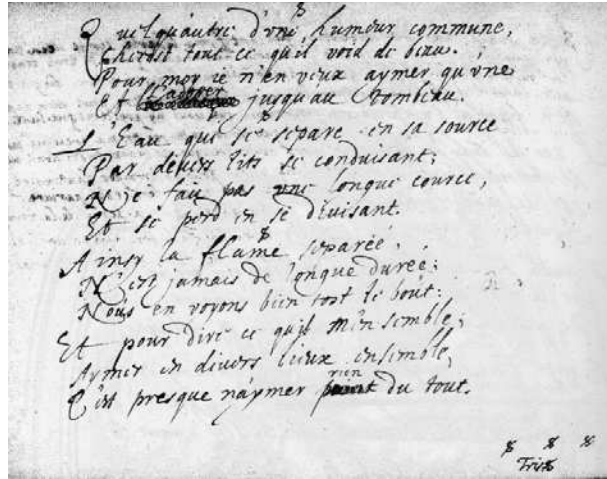 Quelqu'autre d'une humeur commune,
Cherisse tout ce qu'il void de beau.
Pour moy ie n'en veux aymer qu'vne
Et l'aymer jusqu'au tombeau.
L'Eau qui se separe en sa source
Par divers lits se conduisant;
Ne fait pas une longue cource,
Et se perd en se divisant.
Ainsy la flame separée,
N'est jamais de longue durée;
Nous en voyons bien tost le bout:
Et pour dire ce qu'il m'en semble;
Aymer en divers lieux ensemble,
C'est presque n'aymer rien du tout.